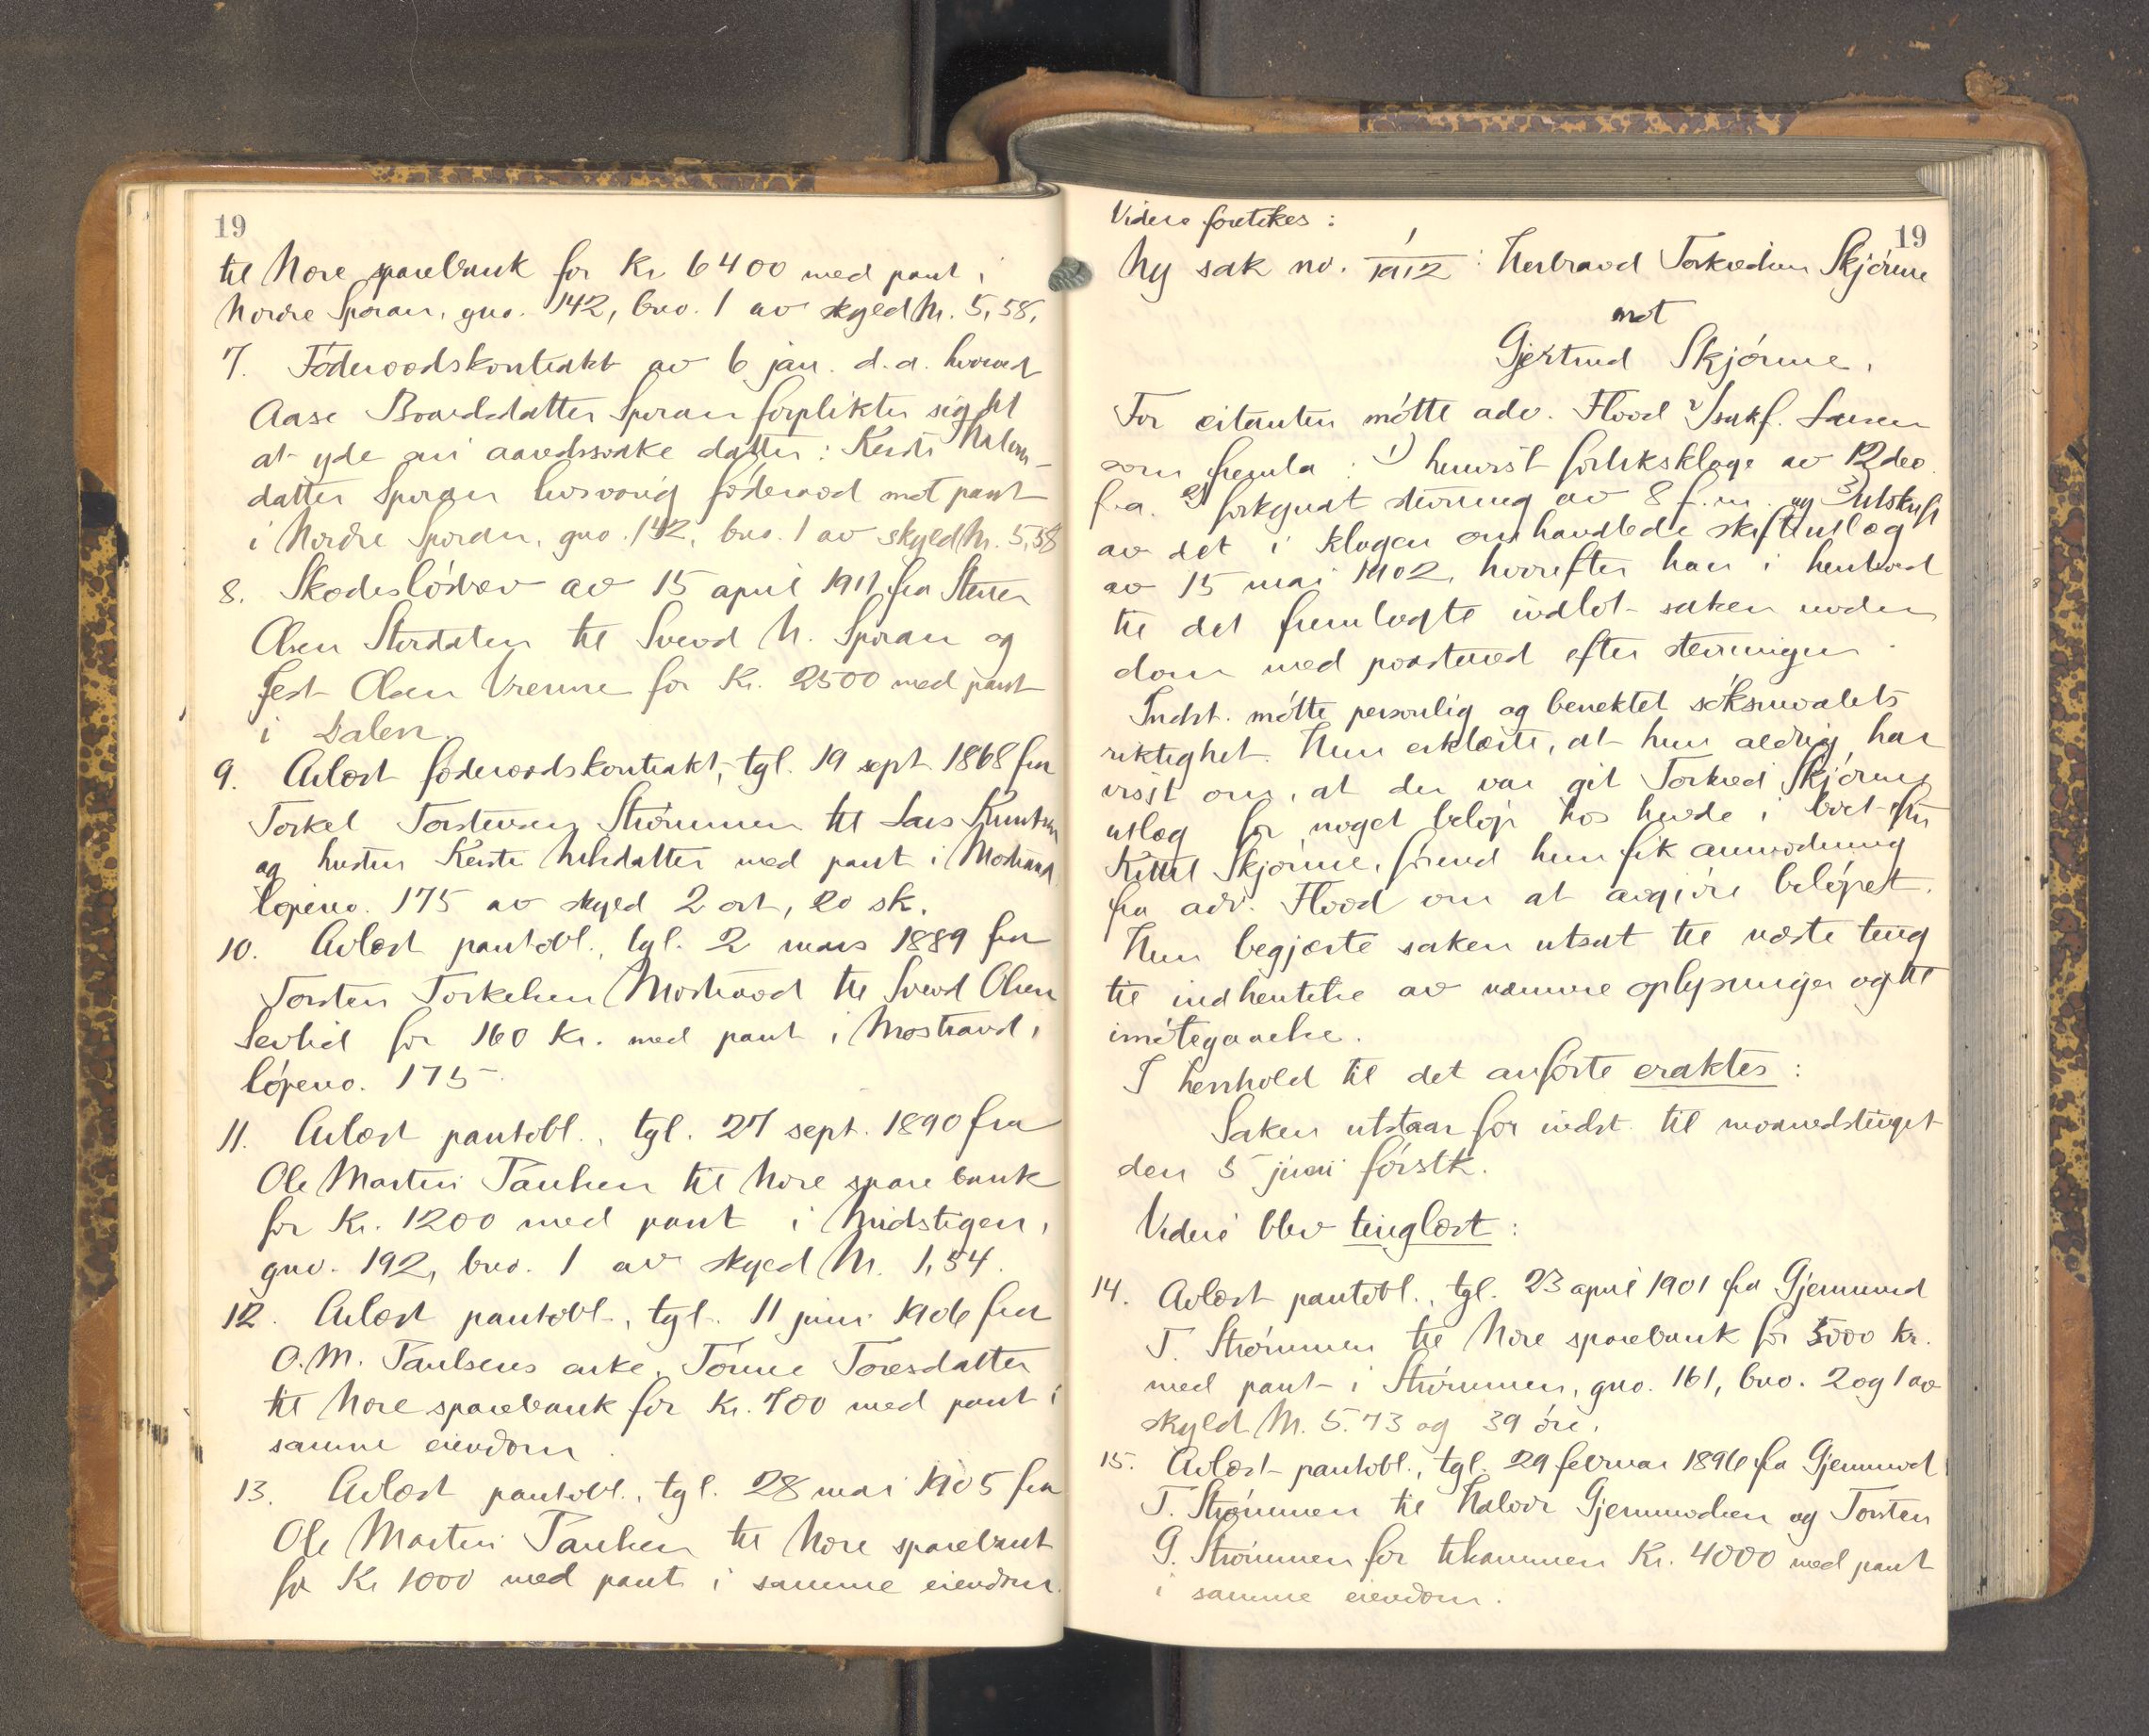 19
til Nore sparebank for Kr 6400 med pant i
Nordre Sporan, gno. 142, bno. 1 av skyld M. 5,58.
7. Föderaadskontrakt av 6 jan. d.a. hvorved
Aase Baardsdatter Sporan forplikter sig til
at yde sin aandssvake datter: Kersti Halvors-
datter Sporan livsvarig föderaad mot pant
i Nordre Sporan, gno. 142, bno. 1 av skyld M. 5,58
8. Skadeslösbrev av 15 april 1911 fra Steen
Olsen Stordalen til Svend N. Sporan og
Gest Olsen Vrenne for Kr. 2500 med pant
i Dalen.
9. Avlæst föderaadskontrakt, tgl. 19 sept. 1868 fra
Torkel Torstensen Strömmen til Lars Knutsen
og hustru Kersti Nilsdatter med pant i Mostrand
löpeno. 175 av skyld 2 ort, 20 sk.
10. Avlæst pantobl., tgl. 2 mars 1889 fra
Torsten Torkelsen Mostrand til Svend Olsen
Sevlid for 160 Kr. med pant i Mostrand,
löpeno. 175
11. Avlæst pantobl., tgl. 27 sept. 1890 fra
Ole Martin Paulsen til Nore sparebank
for Kr. 1200 med pant i Midstigen,
gno. 192, bno. 1 av skyld M. 1,54.
12. Avlæst pantobl., tgl. 11 juni 1906 fra
O.M. Paulsens enke, Tönne Toresdatter
til Nore sparebank for Kr. 700 med pant i
samme eiendom.
13. Avlæst pantobl., tgl. 28 mai 1905 fra
Ole Martin Paulsen til Nore sparebank
for Kr 1000 med pant i samme eiendom.
Videre foretokes:
19
Ny sak no. 1/1912: Herbrand Torkedsen Skjönne
mot
Gjertrud Skjönne.
For citanten mötte adv. Flood v/ sakf. Larsen
som fremla: 1) henvist forliksklage av 12 dec.
f.a. 2) forkyndt stevning av 8 f.m. og 3) utskrift
av det i klagen omhandlede skifteutlæg
av 15 mai 1902, hvorefter han i henhold
til det fremlagte indlot saken under
dom med paastand efter stevningen.
Indst. mötte personlig og benektet söksmaalets
riktighet. Hun erklærte, at hun aldrig har
visst om, at der var git Torked Skjönne
utlæg for noget belöp hos hende i boet efter
Kittil Skjönne, förend hun fik anmodning
fra adv. Flood om at avgjöre belöpet.
Hun begjærte saken utsat til næste ting
til indhentelse av nærmere oplysninger og til
imötegaaelse.
I henhold til det anförte eraktes:
Saken utstaar for indst. til maanedstinget
den 5 juni förstk.
Videre blev tinglæst:
14. Avlæst pantobl., tgl. 23 april 1901 fra Gjermund
T. Strömmen til Nore sparebank for 5000 kr.
med pant i Strömmen, gno. 161, bno. 2 og 1 av
skyld M. 5.73 og 39 öre.
15. Avlæst pantobl., tgl. 29 februar 1896 fra Gjermund
T. Strömmen til Halvor Gjermundsen og Torsten
G. Strömmen for tilsammen Kr. 4000 med pant
i samme eiendom.